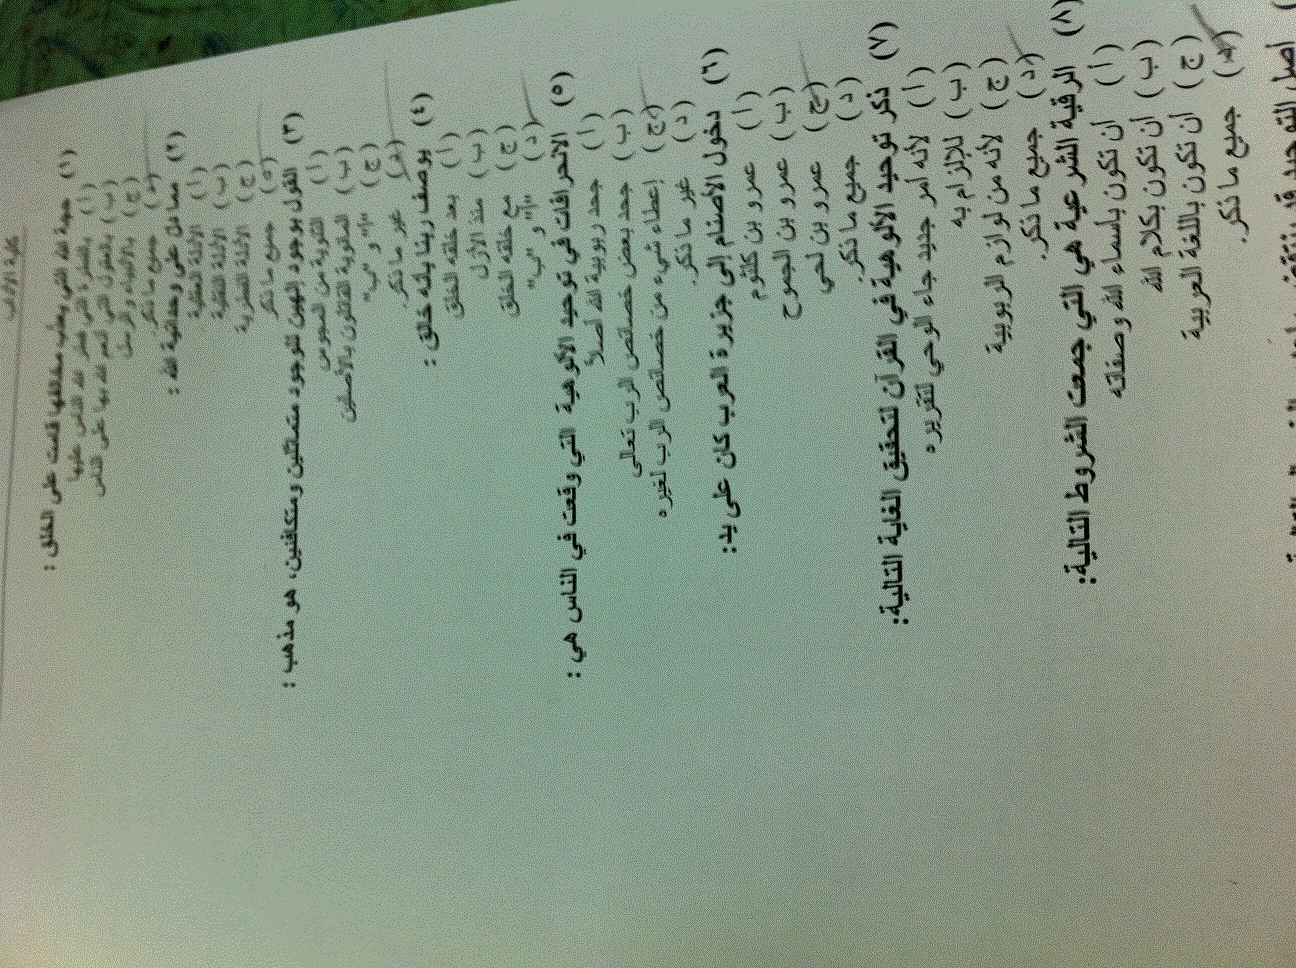 كلية الآداب
(١) حجة الله التي يعذب مخالفها قامت على الخلق :
(أ) بالفطرة التي فطر الله الناس عليها
(ب) بالعقول التي كرم الله بها على الناس
(ج) بالأنبياء والرسل
(د) جميع ما ذكر.
(٢) مما دل على وحدانية الله :
(أ) الأدلة العقلية
(ب) الأدلة النقلية
(ج) الأدلة الفطرية
(د) جميع ما ذكر
(٣) القول بوجود إلهين للوجود متماثلين ومتكافئين، هو مذهب :
(أ) الثنوية من المجوس
(ب) المانوية القائلون بالأصلين
(ج) "أ" و "ب"
(د) غير ما ذكر.
(٤) يوصف ربنا بأنه خالق :
(أ) بعد خلقه الخلق
(ب) منذ الأزل
(ج) مع خلقه الخلق
(د) "أ" و "ب"
(٥) الانحرافات في توحيد الألوهية التي وقعت في الناس هي :
(أ) جحد ربوبية الله أصلاً
(ب) جحد بعض خصائص الرب تعالى
(ج) إعطاء شيء من خصائص الرب لغيره
(د) غير ما ذكر.
(٦) دخول الأصنام إلى جزيرة العرب كان على يد:
(أ) عمرو بن كلثوم
(ب) عمرو بن الجموح
(ج) عمرو بن لحي
(د) جميع ما ذكر
(٧) ذكر توحيد الألوهية في القرآن لتحقيق الغاية التالية:
(أ) لأنه أمر جديد جاء الوحي لتقريره
(ب) للإلزام به
(ج) لأنه من لوازم الربوبية
(د) جميع ما ذكر.
(٨) الرقية الشرعية هي التي جمعت الشروط التالية:
(أ) أن تكون بأسماء الله وصفاته
(ب) أن تكون بكلام الله
(ج) أن تكون باللغة العربية
(د) جميع ما ذكر.
أصل التوحيد قد ينتقض